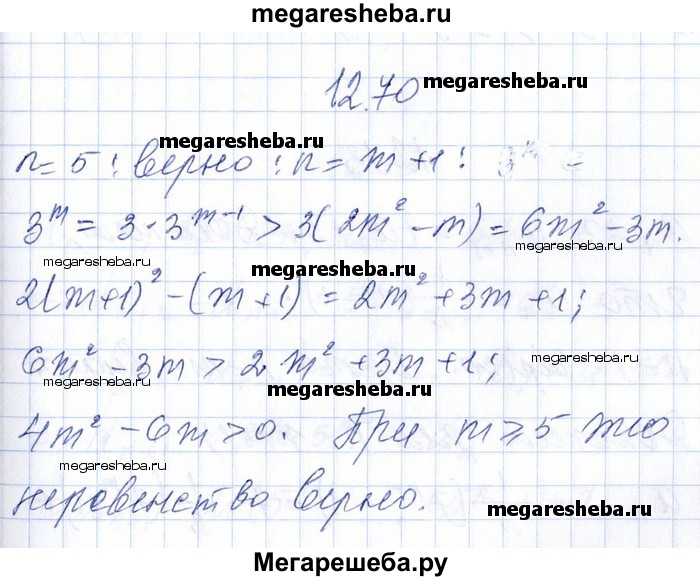 megaresheba.ru
12.70
megaresheba.ru
megaresheba.ru
n = 5 : верно : n = m + 1 :
megaresheba.ru
3^m = 3 · 3^(m-1) > 3(2m² - m) = 6m² - 3m.
megaresheba.ru
megaresheba.ru
megaresheba.ru
2(m+1)² - (m+1) = 2m² + 3m + 1;
6m² - 3m > 2m² + 3m + 1;
megaresheba.ru
megaresheba.ru
megaresheba.ru
4m² - 6m > 0. При m ≥ 5 это
megaresheba.ru
неравенство верно.
megaresheba.ru
Мегарешеба.ру